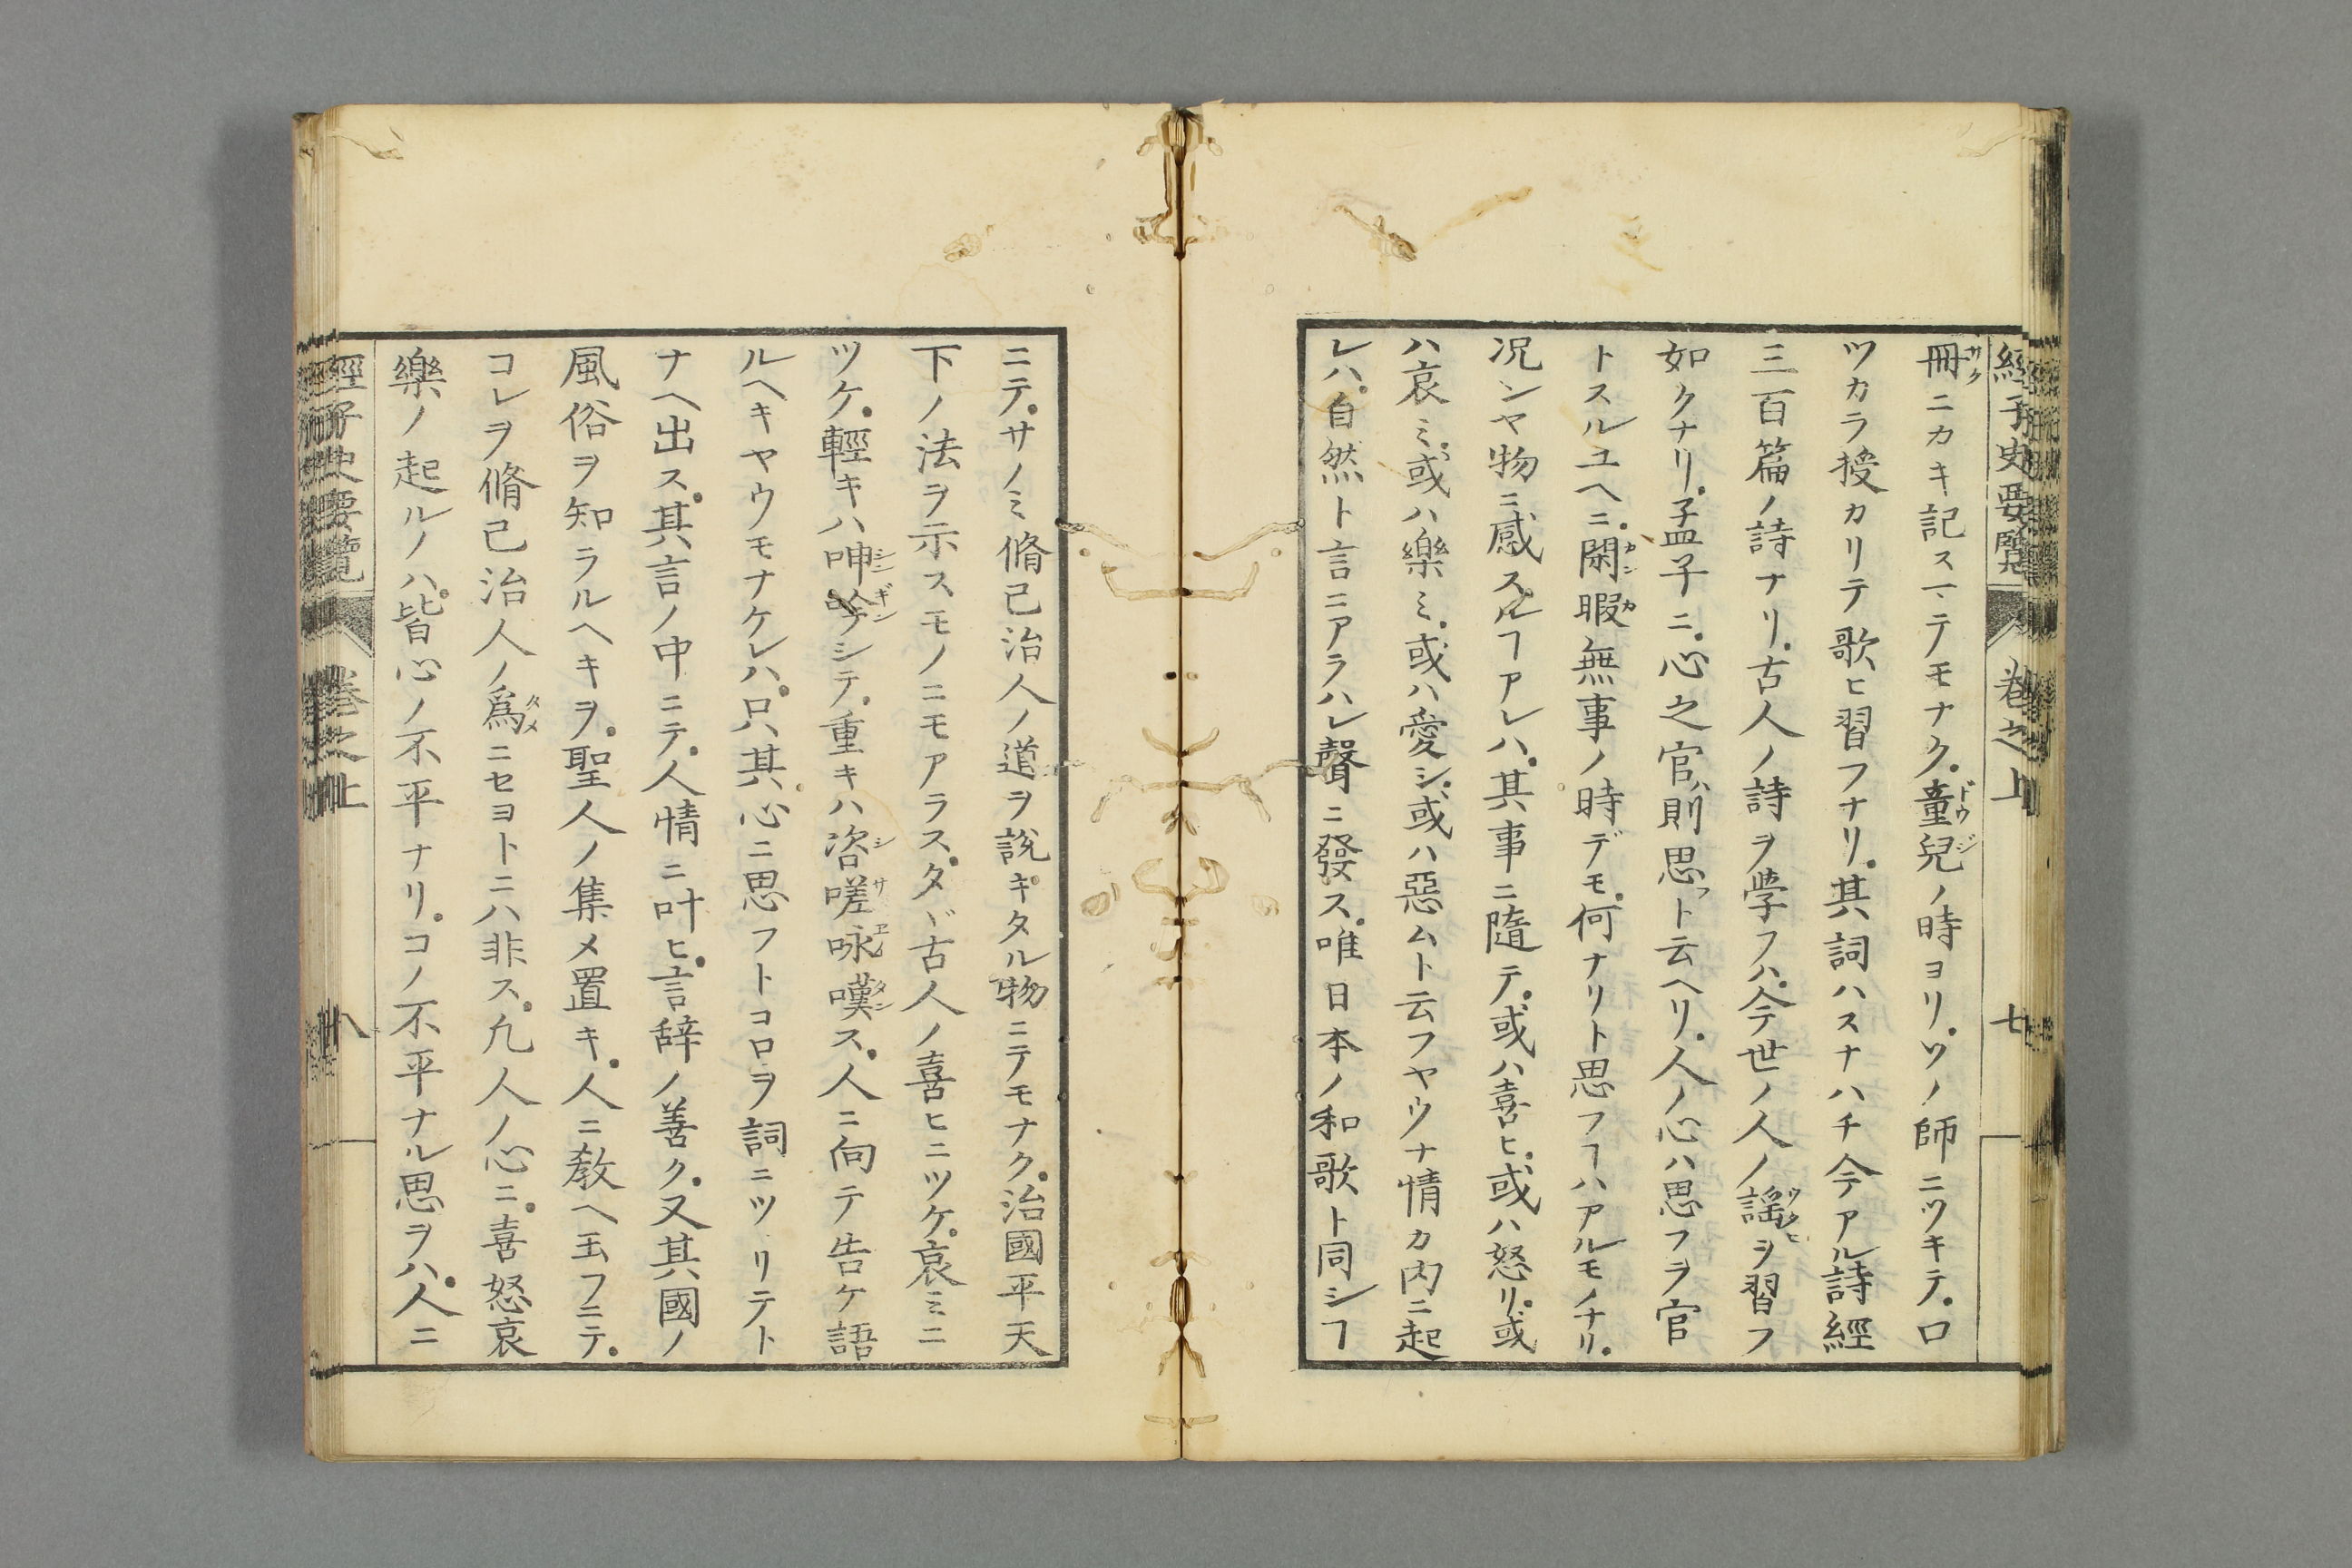 經子史要覽 卷之上 七
冊ニカキ記スマテモナク。童兒ノ時ヨリ。ソノ師ニツキテ。口
ツカラ授カリテ歌ヒ習フナリ。其詞ハスナハチ今アル詩經
三百篇ノ詩ナリ。古人ノ詩ヲ学フハ。今世ノ人ノ謡ヲ習フ
如クナリ。孟子ニ。心之官ハ則思フト云ヘリ。人ノ心ハ思フヲ官
トスルユヘニ。閑暇無事ノ時デモ。何ナリト思フヿハアルモノナリ。
况ンヤ物ニ感スルヿアレハ。其事ニ隨テ。或ハ喜ヒ。或ハ怒リ。或
ハ哀ミ。或ハ樂ミ。或ハ愛シ。或ハ惡ムト云フヤウナ情カ内ニ起
レハ。自然ト言ニアラハレ聲ニ發ス。唯日本ノ和歌ト同シヿ
ニテ。サノミ脩己治人ノ道ヲ說キタル物ニテモナク。治國平天
下ノ法ヲ示スモノニモアラス。タヾ古人ノ喜ヒニツケ。哀ミニ
ツケ。輕キハ呻吟シテ。重キハ咨嗟咏嘆ス。人ニ向テ告ケ語
ルヘキヤウモナケレハ。只其心ニ思フトコロヲ詞ニツヽリテト
ナヘ出ス。其言ノ中ニテ。人情ニ叶ヒ。言辞ノ善ク。又其國ノ
風俗ヲ知ラルヘキヲ。聖人ノ集メ置キ。人ニ教ヘ玉フニテ。
コレヲ脩己治人ノ爲ニセヨトニハ非ス。凡人ノ心ニ。喜怒哀
樂ノ起ルノハ。皆心ノ不平ナリ。コノ不平ナル思ヲハ。人ニ
經子史要覽 卷之上 八